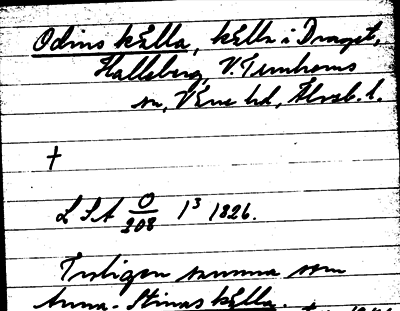 Odins källa, källa i Draget,
Hallsberg, V. Tunhems
sn, Väne hd, Älvsb. l.
†
LSA O/308 1³ 1826.
Troligen samma som
Anna-Stinas källa.